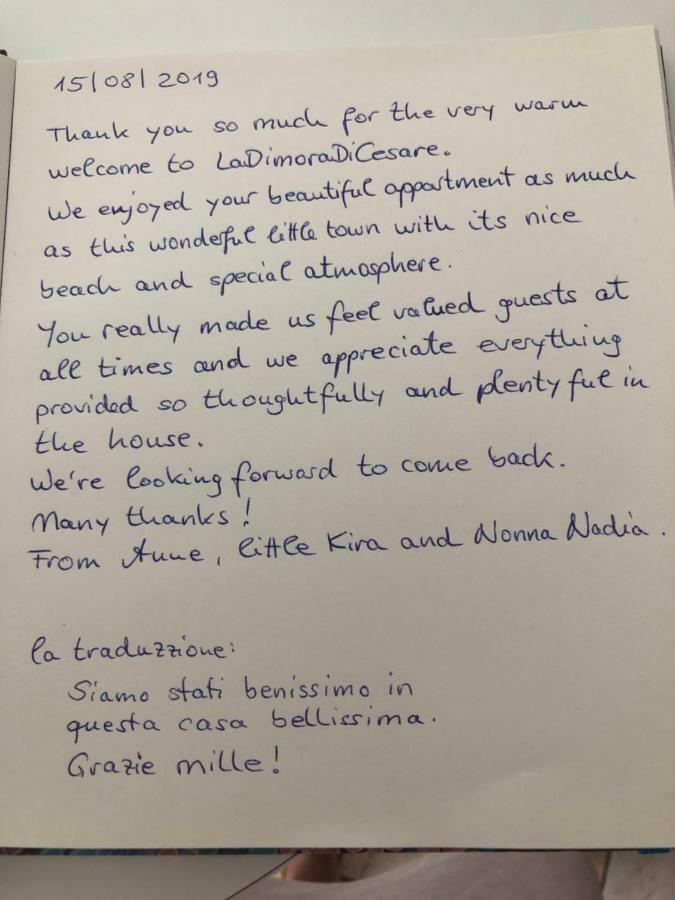 15/08/2019
Thank you so much for the very warm
welcome to LaDimoraDiCesare.
We enjoyed your beautiful appartment as much
as this wonderful little town with its nice
beach and special atmosphere.
You really made us feel valued guests at
all times and we appreciate everything
provided so thoughtfully and plentyful in
the house.
We're looking forward to come back.
Many thanks!
From Anne, little Kira and Nonna Nadia.
la traduzzione:
Siamo stati benissimo in
questa casa bellissima.
Grazie mille!